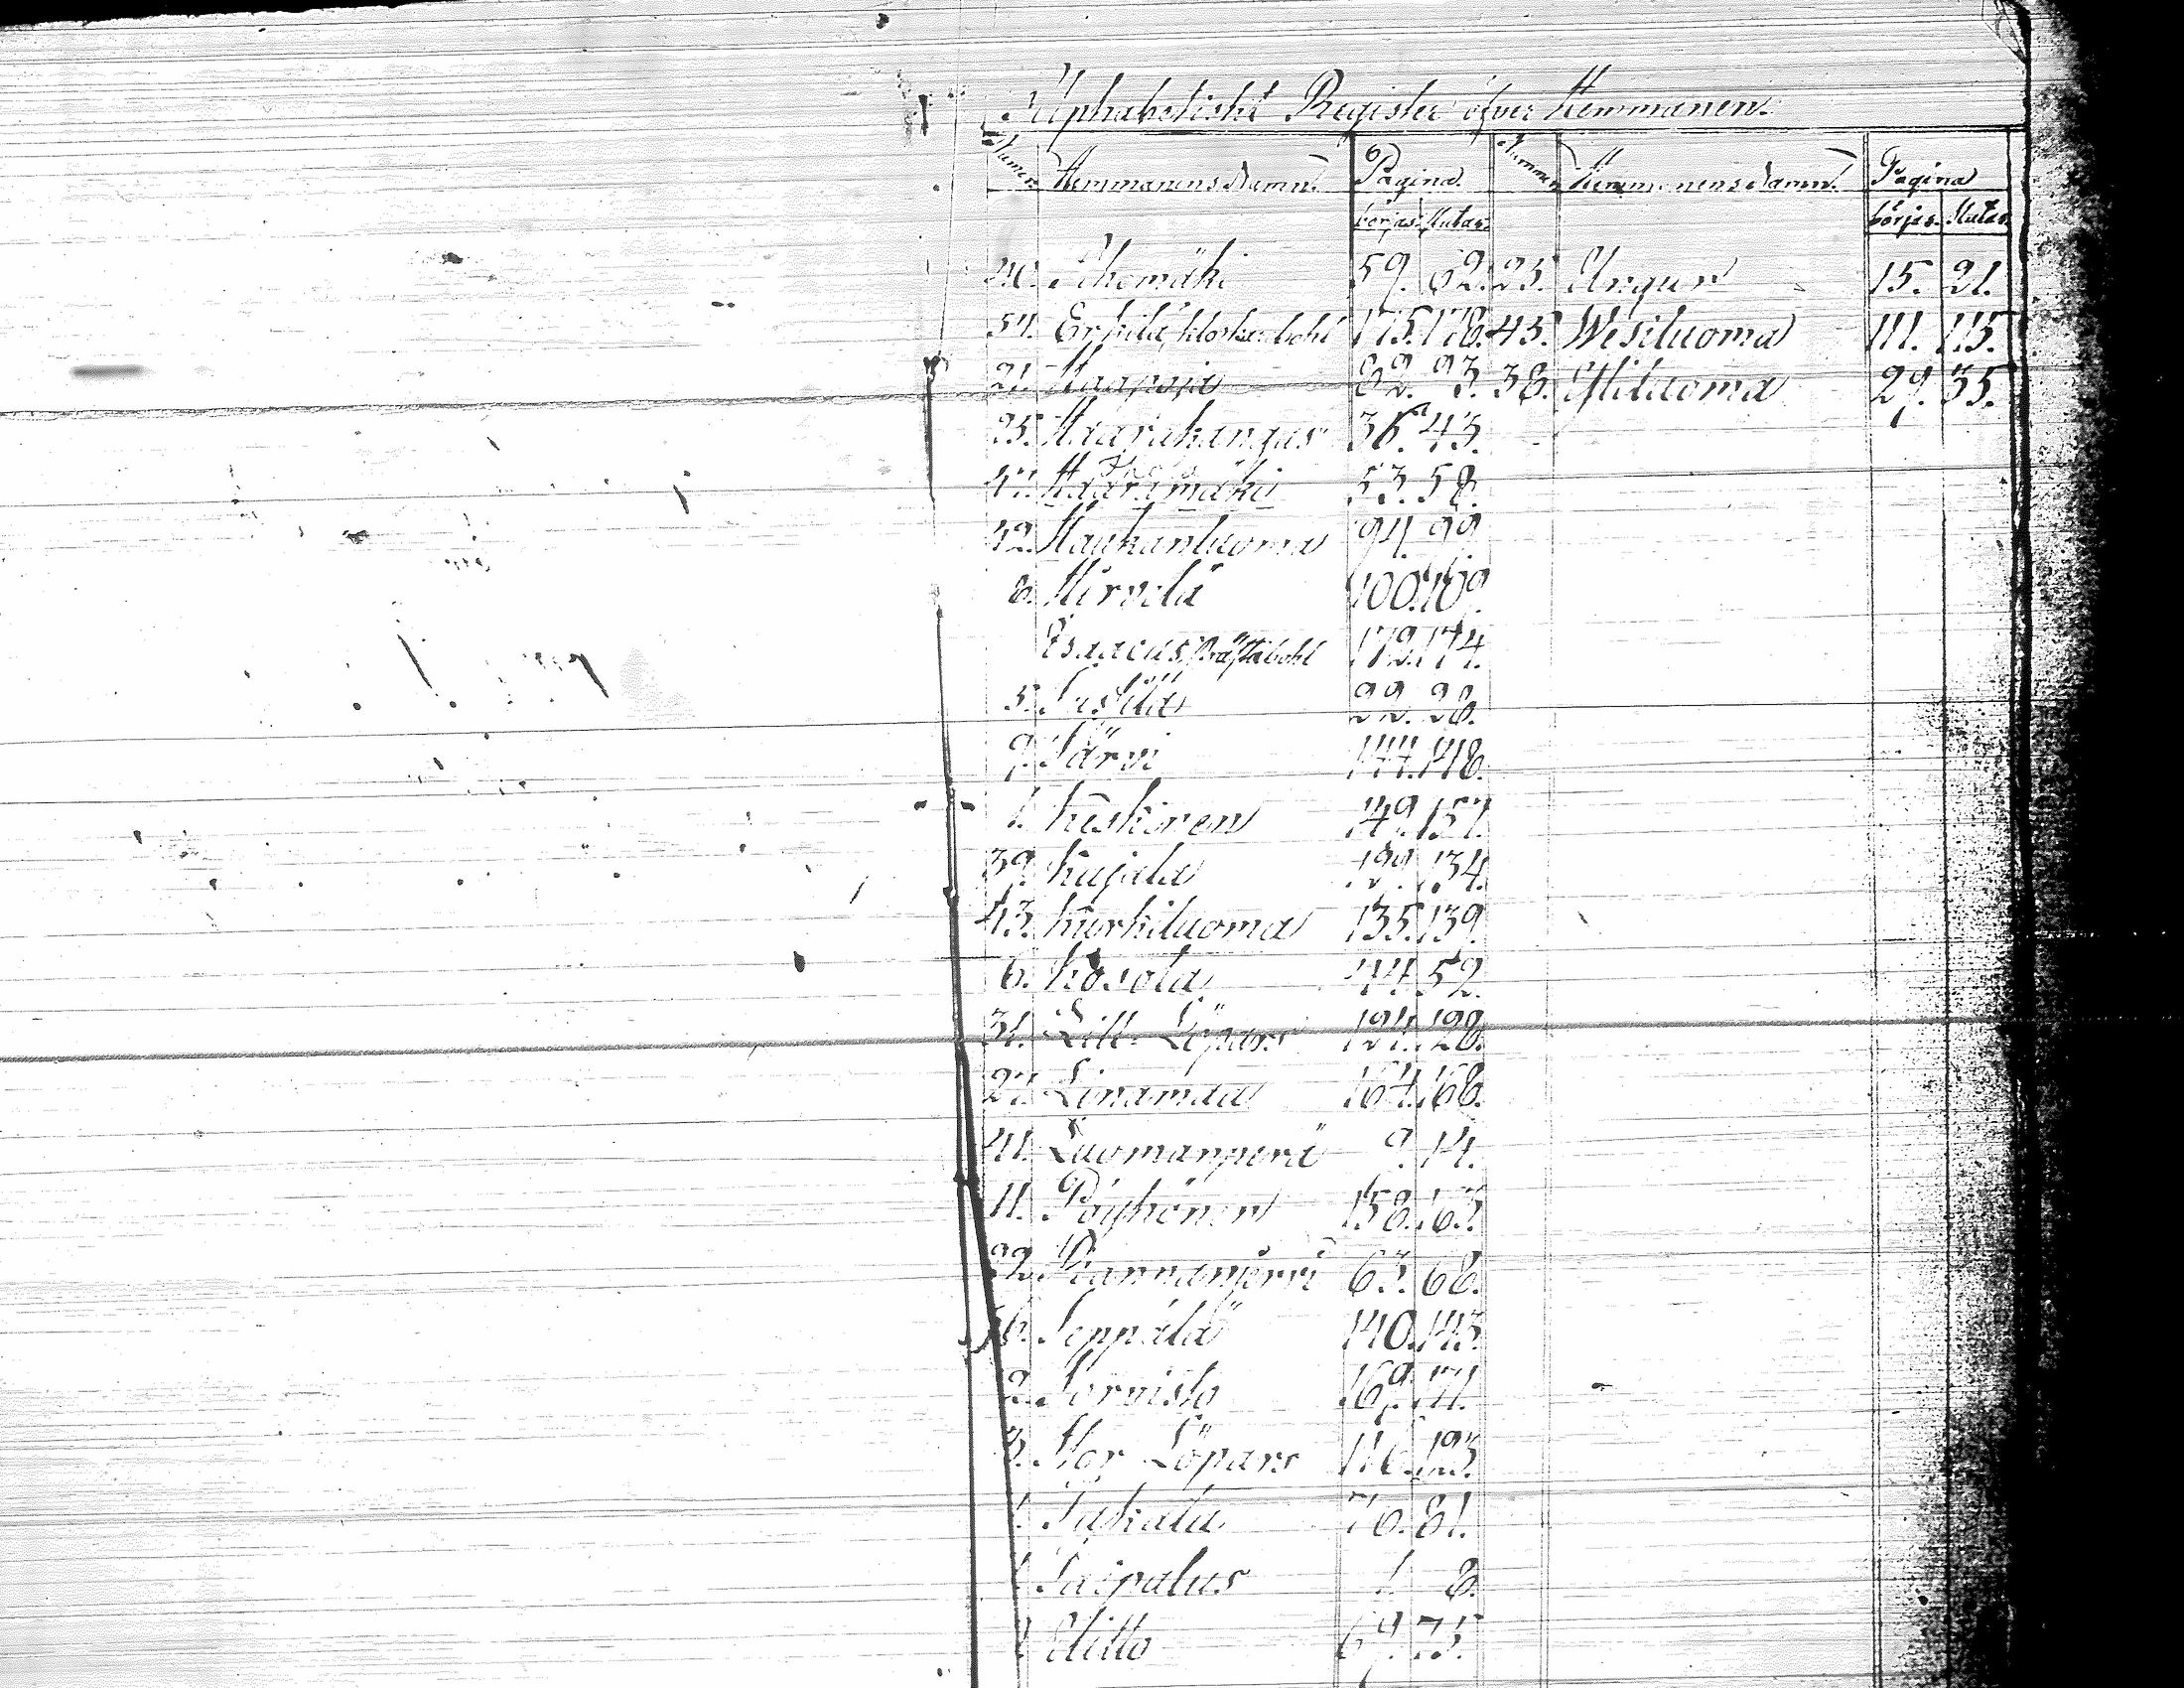 Alphabetiskt Register öfver Hemmanen.
Nummer. Hemmanens Namn. Pagina. Nummer. Hemmanens Namn. Pagina
börjas. slutas. börjas. slutas.
40. Ahomäki 59. 62. 23. Ungur 15. 21.
54. Erkilä, klockarebohl 175. 178. 45. Wesiluoma 111. 115.
21. Haapoja 82. 93. 38. Yliluoma 29. 35.
25. Haarakangas 36. 43.
47. Harjamäki 53. 58.
42. Haukanluoma 94. 99.
8. Hirvelä 100. 109.
Isaacus, Prästabohl 172. 174.
5. Jussila 22. 28.
9. Järvi 144. 148.
1. Keskinen 149. 157.
39. Kujala 129. 134.
43. Kurkiluoma 135. 139.
6. Kosola 44. 52.
31. Lill-Löpars 124. 128.
27. Linamaa 164. 168.
41. Luomanperä 9. 14.
11. Pöyhönen 158. 163.
22. Rannanjärvi 63. 68.
6. Seppälä 140. 143.
2. Sorvisto 169. 171.
3. Stor Löpars 116. 123.
Takala 76. 81.
Taipalus 1. 8.
Uitto 69. 75.